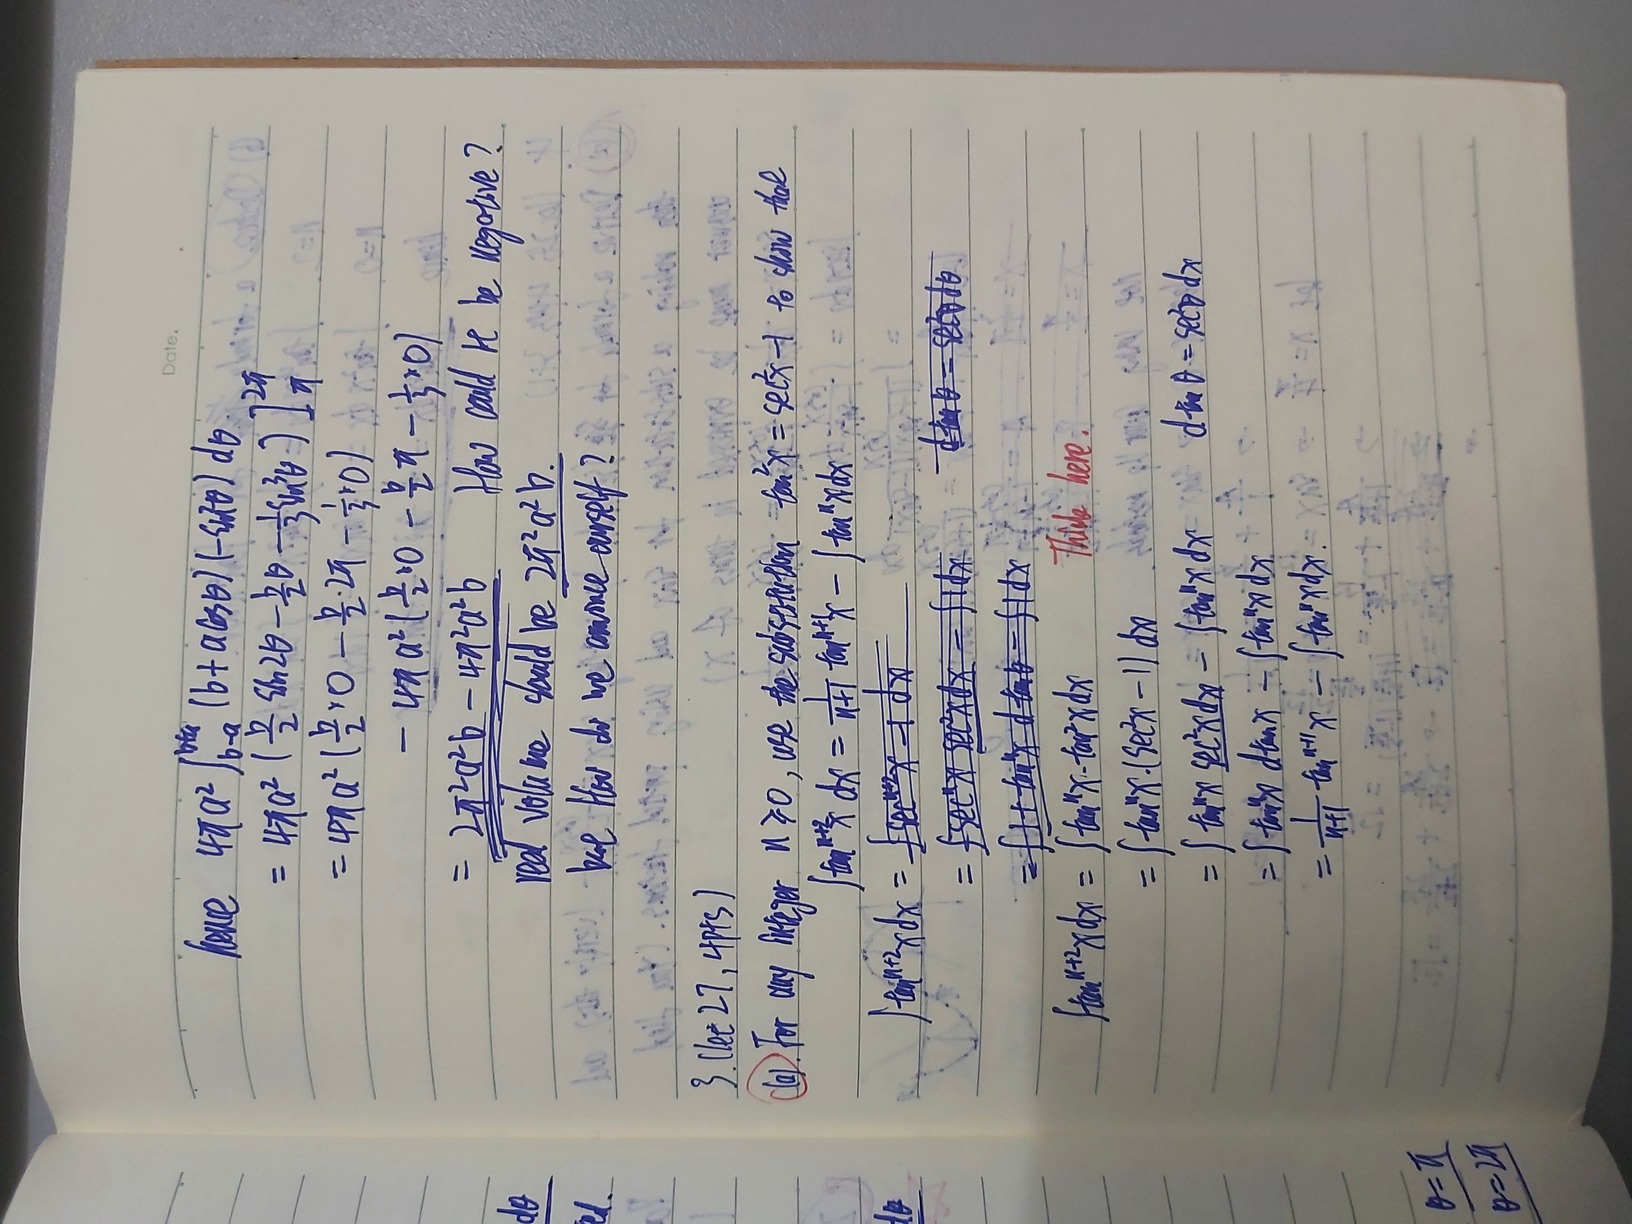 Date.
hence 4πa² ∫_{b-a}^{b+a} (b+a cosθ) (-sin²θ) dθ
= 4πa² ( b/2 sin2θ - b/2 θ - 1/3 sin³θ ) ]_π^{2π}
= 4πa² ( b/2 · 0 - b/2 · 2π - 1/3 · 0)
- 4πa² ( b/2 · 0 - b/2 π - 1/3 · 0)
= 2π²a²b - 4π²a²b How could it be negative?
real volume should be 2π²a²b.
but How do we convince ourself?
3. (lec 27, 4pts)
(a). For any integer n ≥ 0, use the substitution tan²x = sec²x - 1 to show that
∫tan^{n+2}x dx = 1/(n+1) tan^{n+1}x - ∫tan^n x dx
∫tan^{n+2}x dx = ∫sec^{n+2}x - 1 dx
= ∫sec^n x sec²x dx - ∫1 dx d tanθ = sec²θ dθ
= ∫1 + tan^n x d tanθ - ∫1 dx
∫tan^{n+2}x dx = ∫tan^n x · tan²x dx Think here.
= ∫tan^n x · (sec²x - 1) dx
= ∫tan^n x sec²x dx - ∫tan^n x dx d tan θ = sec²θ dx
= ∫tan^n x d tan x - ∫tan^n x dx
= 1/(n+1) tan^{n+1} x - ∫tan^n x dx.
dθ
ed.
dθ
θ = π
θ = 2π